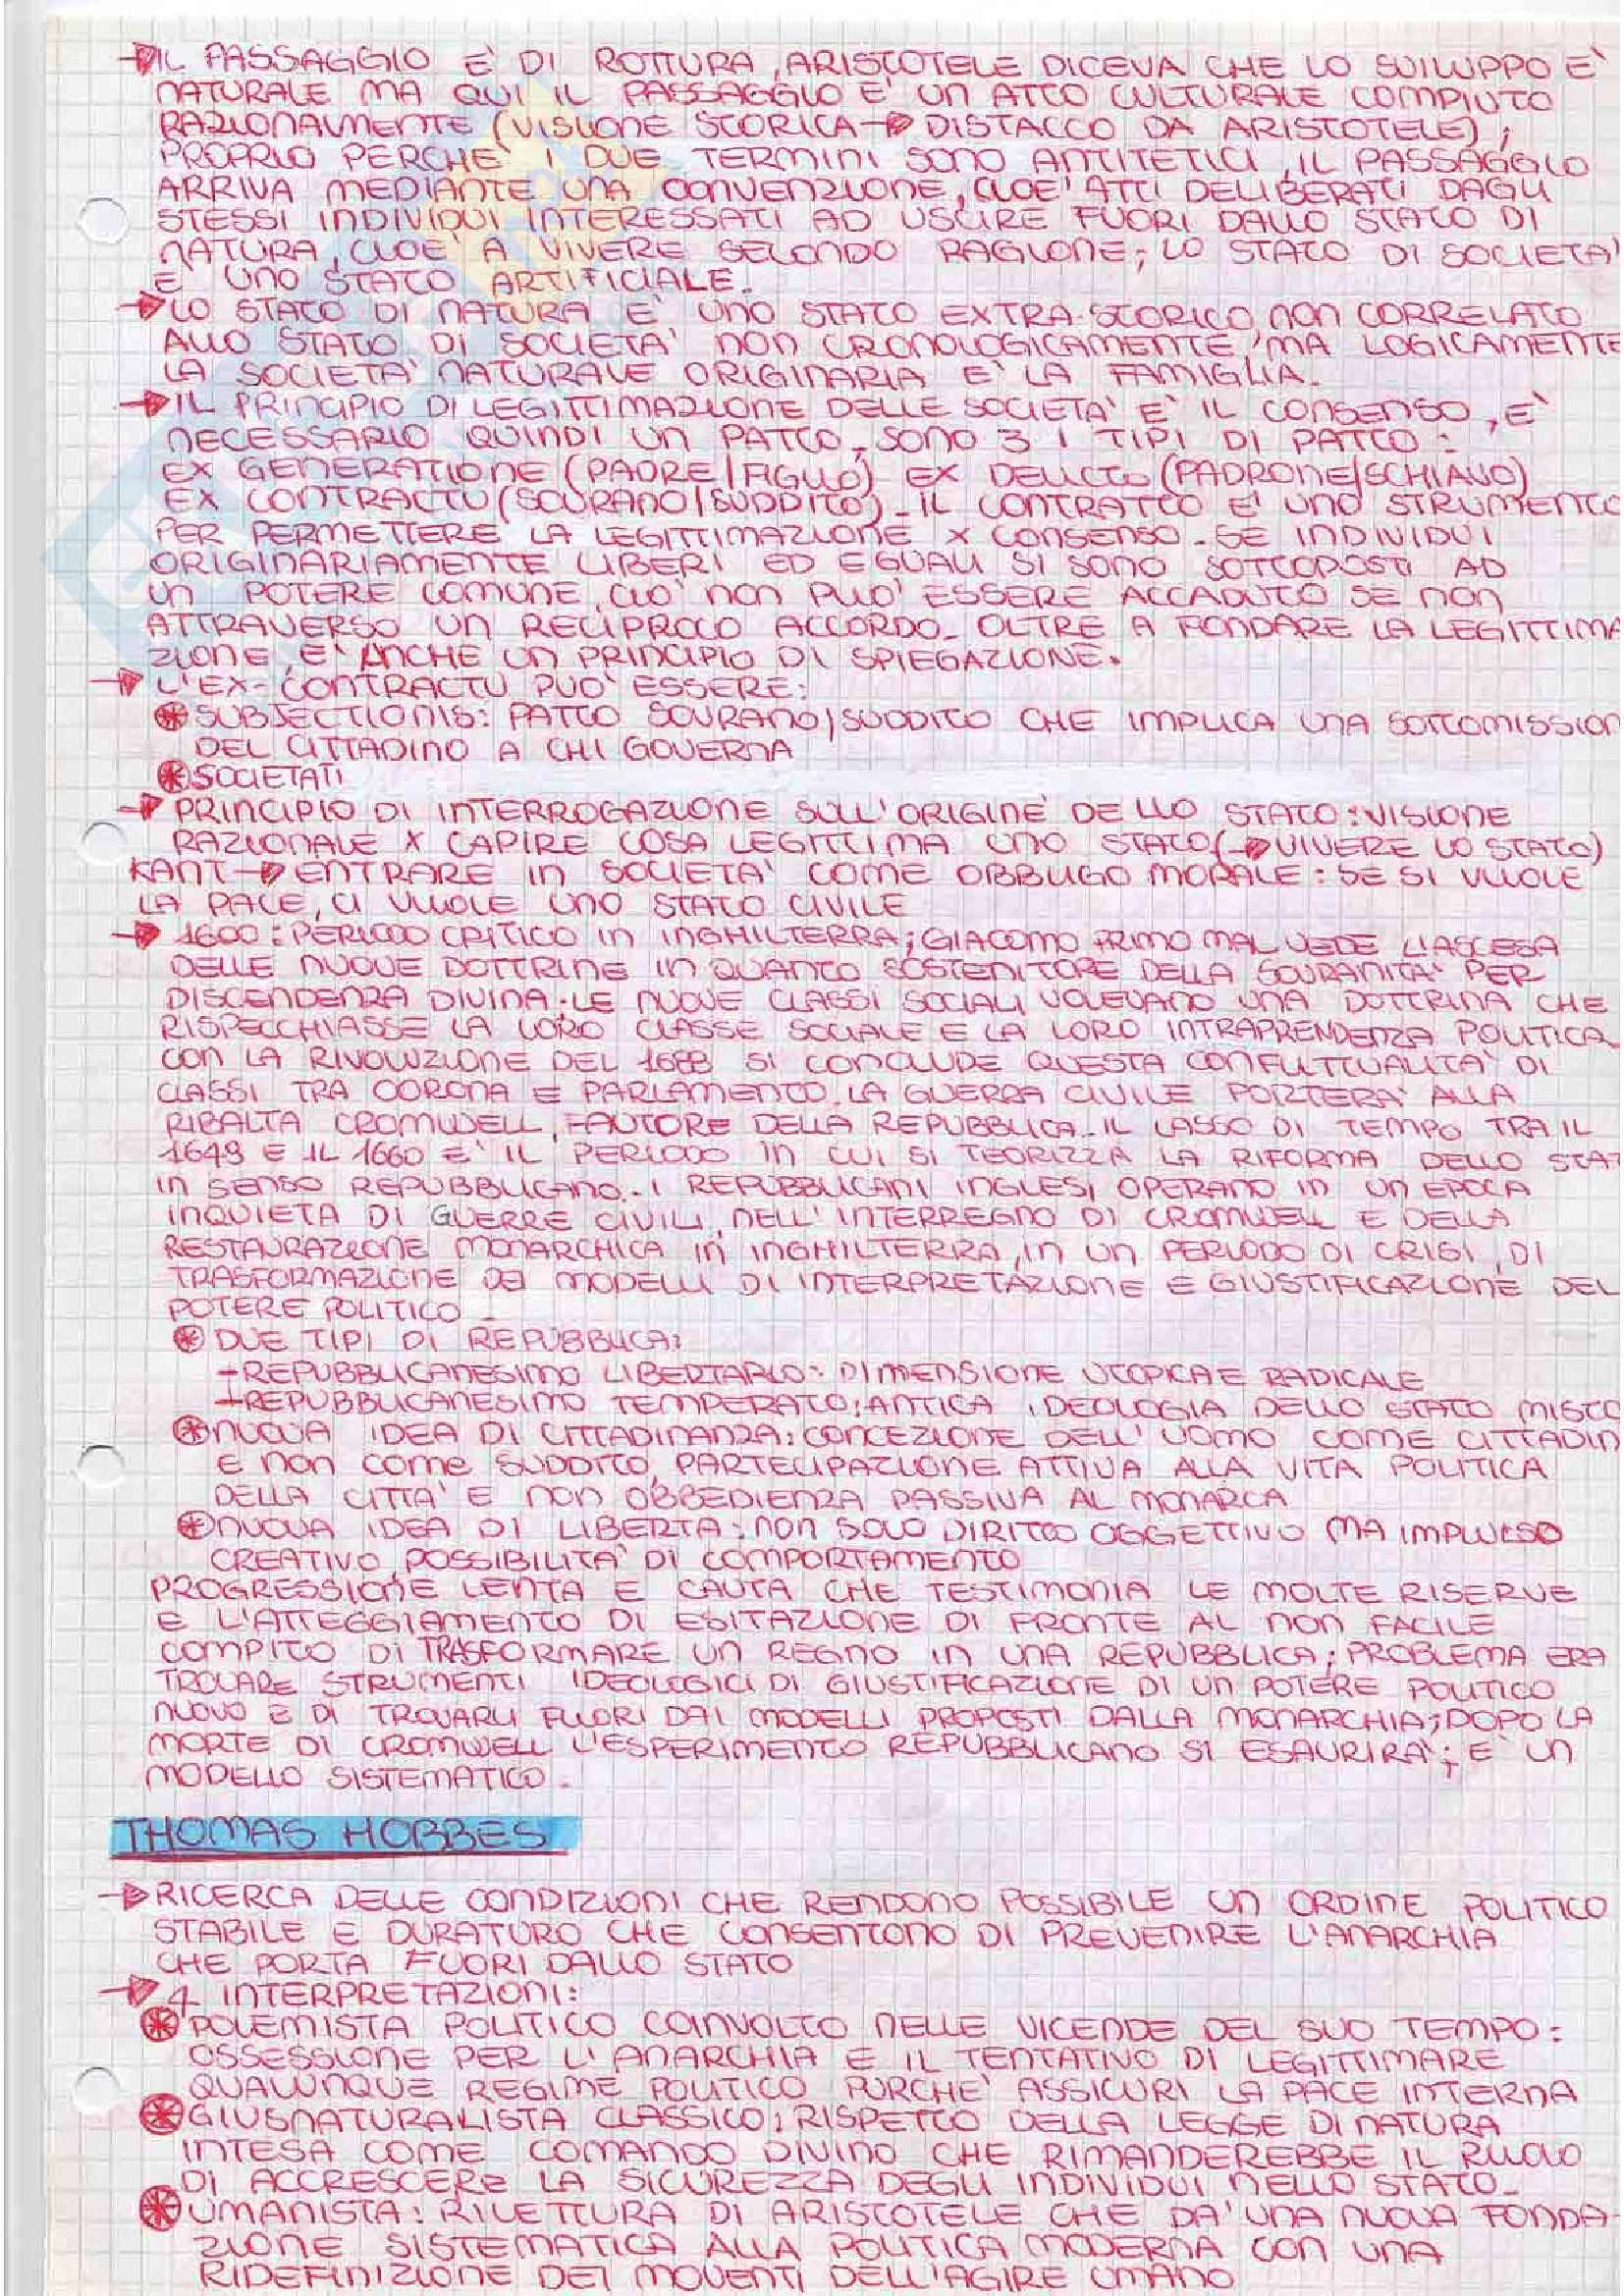 → IL PASSAGGIO E' DI ROTTURA, ARISTOTELE DICEVA CHE LO SVILUPPO E'
NATURALE MA QUI IL PASSAGGIO E' UN ATTO CULTURALE COMPIUTO
RAZIONALMENTE (VISIONE STORICA → DISTACCO DA ARISTOTELE);
PROPRIO PERCHE' I DUE TERMINI SONO ANTITETICI, IL PASSAGGIO
ARRIVA MEDIANTE UNA CONVENZIONE, CIOE' ATTI DELIBERATI DAGLI
STESSI INDIVIDUI INTERESSATI AD USCIRE FUORI DALLO STATO DI
NATURA, CIOE' A VIVERE SECONDO RAGIONE; LO STATO DI SOCIETA'
E' UNO STATO ARTIFICIALE.
→ LO STATO DI NATURA E' UNO STATO EXTRA-STORICO, NON CORRELATO
ALLO STATO DI SOCIETA' NON CRONOLOGICAMENTE, MA LOGICAMENTE
LA SOCIETA' NATURALE ORIGINARIA E' LA FAMIGLIA.
→ IL PRINCIPIO DI LEGITTIMAZIONE DELLE SOCIETA' E' IL CONSENSO, E'
NECESSARIO QUINDI UN PATTO. SONO 3 I TIPI DI PATTO:
EX GENERATIONE (PADRE/FIGLIO) EX DELICTO (PADRONE/SCHIAVO)
EX CONTRACTU (SOVRANO/SUDDITO). IL CONTRATTO E' UNO STRUMENTO
PER PERMETTERE LA LEGITTIMAZIONE X CONSENSO. SE INDIVIDUI
ORIGINARIAMENTE LIBERI ED EGUALI SI SONO SOTTOPOSTI AD
UN POTERE COMUNE, CIO' NON PUO' ESSERE ACCADUTO SE NON
ATTRAVERSO UN RECIPROCO ACCORDO. OLTRE A FONDARE LA LEGITTIMA
ZIONE, E' ANCHE UN PRINCIPIO DI SPIEGAZIONE.
→ L'EX-CONTRACTU PUO' ESSERE:
⊛ SUBJECTIONIS: PATTO SOVRANO/SUDDITO CHE IMPLICA UNA SOTTOMISSION
DEL CITTADINO A CHI GOVERNA
⊛ SOCIETATI
→ PRINCIPIO DI INTERROGAZIONE SULL'ORIGINE DELLO STATO: VISIONE
RAZIONALE X CAPIRE COSA LEGITTIMA UNO STATO (→ VIVERE LO STATO)
KANT → ENTRARE IN SOCIETA' COME OBBLIGO MORALE: SE SI VUOLE
LA PACE, CI VUOLE UNO STATO CIVILE
→ 1600: PERIODO CRITICO IN INGHILTERRA; GIACOMO PRIMO MAL VEDE L'ASCESA
DELLE NUOVE DOTTRINE IN QUANTO SOSTENITORE DELLA SOVRANITA' PER
DISCENDENZA DIVINA. LE NUOVE CLASSI SOCIALI VOLEVANO UNA DOTTRINA CHE
RISPECCHIASSE LA LORO CLASSE SOCIALE E LA LORO INTRAPRENDENZA POLITICA.
CON LA RIVOLUZIONE DEL 1688 SI CONCLUDE QUESTA CONFLITTUALITA' DI
CLASSI TRA CORONA E PARLAMENTO. LA GUERRA CIVILE PORTERA' ALLA
RIBALTA CROMWELL, FAUTORE DELLA REPUBBLICA. IL LASSO DI TEMPO TRA IL
1649 E IL 1660 E' IL PERIODO IN CUI SI TEORIZZA LA RIFORMA DELLO STAT
IN SENSO REPUBBLICANO. I REPUBBLICANI INGLESI OPERANO IN UN EPOCA
INQUIETA DI GUERRE CIVILI, NELL'INTERREGNO DI CROMWELL E DELLA
RESTAURAZIONE MONARCHICA IN INGHILTERRA, IN UN PERIODO DI CRISI, DI
TRASFORMAZIONE DEI MODELLI DI INTERPRETAZIONE E GIUSTIFICAZIONE DEL
POTERE POLITICO.
⊛ DUE TIPI DI REPUBBLICA:
-REPUBBLICANESIMO LIBERTARIO: DIMENSIONE UTOPICA E RADICALE
-REPUBBLICANESIMO TEMPERATO: ANTICA IDEOLOGIA DELLO STATO MISTO
⊛ NUOVA IDEA DI CITTADINANZA: CONCEZIONE DELL'UOMO COME CITTADIN
E NON COME SUDDITO, PARTECIPAZIONE ATTIVA ALLA VITA POLITICA
DELLA CITTA' E NON OBBEDIENZA PASSIVA AL MONARCA
⊛ NUOVA IDEA DI LIBERTA': NON SOLO DIRITTO OGGETTIVO MA IMPULSO
CREATIVO, POSSIBILITA' DI COMPORTAMENTO
PROGRESSIONE LENTA E CAUTA CHE TESTIMONIA LE MOLTE RISERVE
E L'ATTEGGIAMENTO DI ESITAZIONE DI FRONTE AL NON FACILE
COMPITO DI TRASFORMARE UN REGNO IN UNA REPUBBLICA; PROBLEMA ERA
TROVARE STRUMENTI IDEOLOGICI DI GIUSTIFICAZIONE DI UN POTERE POLITICO
NUOVO E DI TROVARLI FUORI DAI MODELLI PROPOSTI DALLA MONARCHIA; DOPO LA
MORTE DI CROMWELL L'ESPERIMENTO REPUBBLICANO SI ESAURIRA'; E' UN
MODELLO SISTEMATICO.
THOMAS HOBBES
→ RICERCA DELLE CONDIZIONI CHE RENDONO POSSIBILE UN ORDINE POLITICO
STABILE E DURATURO CHE CONSENTONO DI PREVENIRE L'ANARCHIA
CHE PORTA FUORI DALLO STATO
→ 4 INTERPRETAZIONI:
⊛ POLEMISTA POLITICO COINVOLTO NELLE VICENDE DEL SUO TEMPO:
OSSESSIONE PER L'ANARCHIA E IL TENTATIVO DI LEGITTIMARE
QUALUNQUE REGIME POLITICO PURCHE' ASSICURI LA PACE INTERNA
⊛ GIUSNATURALISTA CLASSICO: RISPETTO DELLA LEGGE DI NATURA
INTESA COME COMANDO DIVINO CHE RIMANDEREBBE IL RUOLO
DI ACCRESCERE LA SICUREZZA DEGLI INDIVIDUI NELLO STATO.
⊛ UMANISTA: RILETTURA DI ARISTOTELE CHE DA' UNA NUOVA FONDA-
ZIONE SISTEMATICA ALLA POLITICA MODERNA CON UNA
RIDEFINIZIONE DEI MOVENTI DELL'AGIRE UMANO